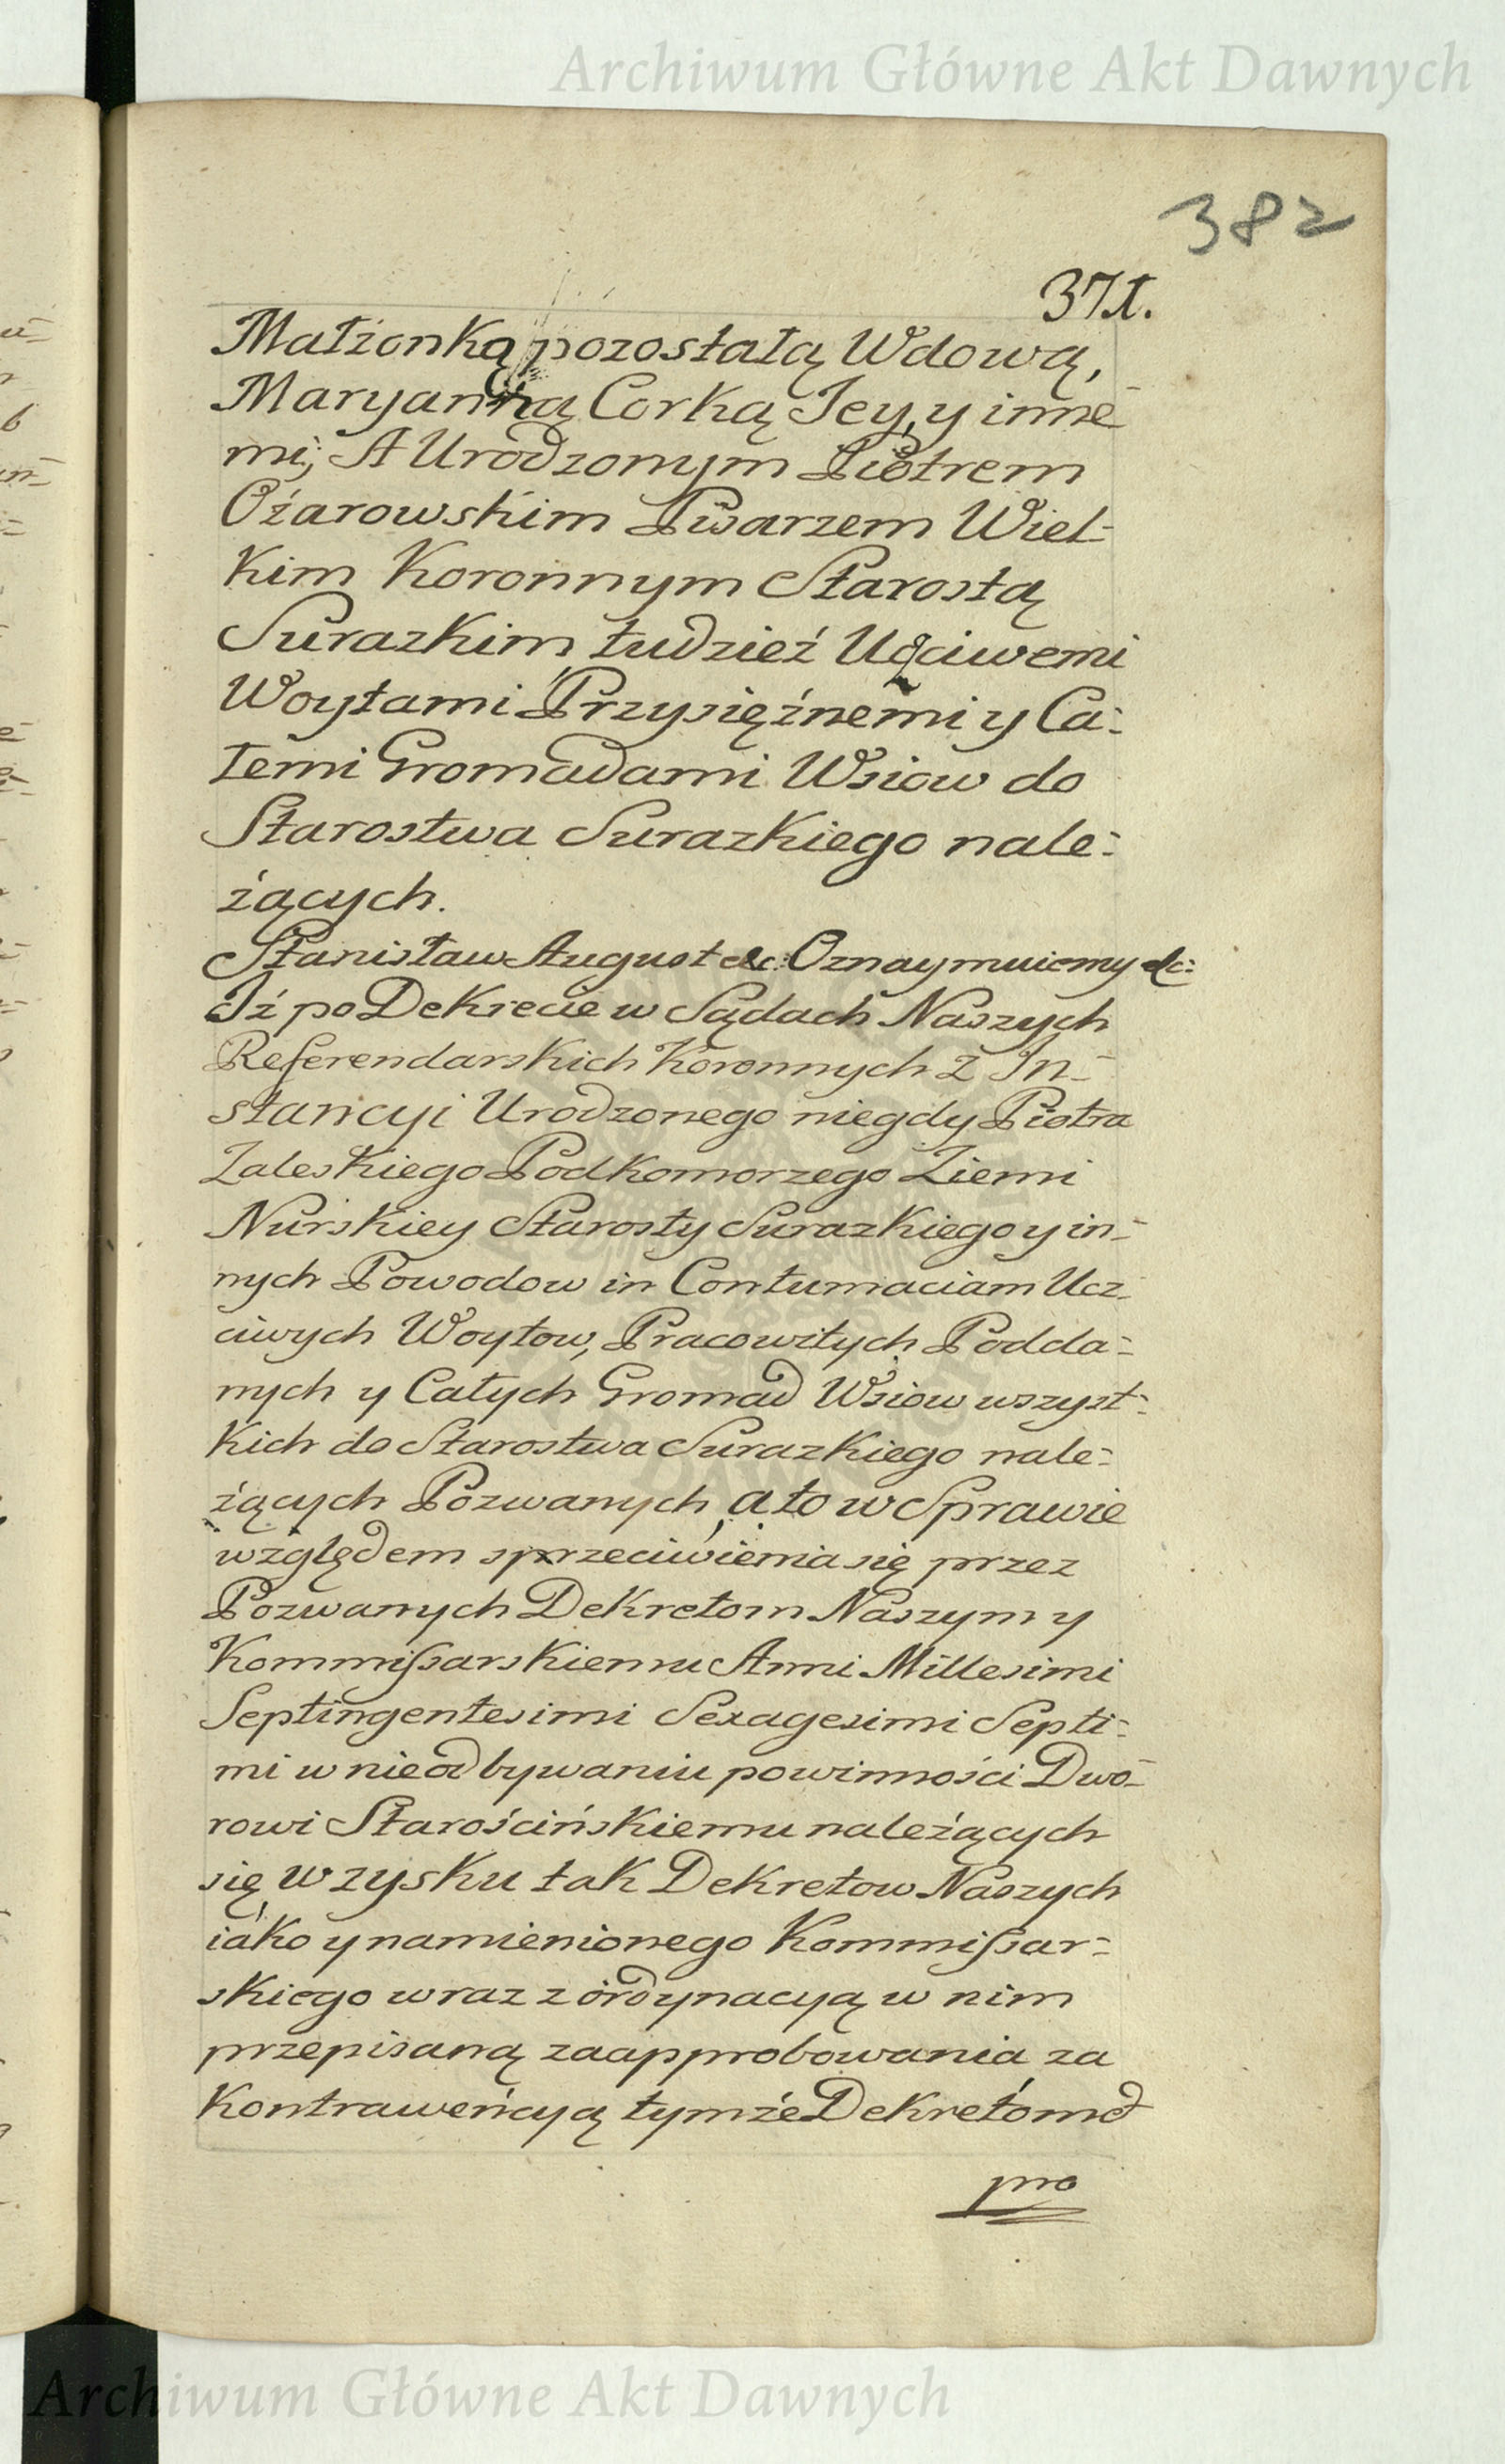 Archiwum Główne Akt Dawnych
382
371.
Małżonką pozostałą Wdową,
Maryanną Corką Jey, y inne-
mi; A Urodzonym Piotrem
Ożarowskim Pisarzem Wiel-
kim Koronnym Starostą
Surazkim tudzież Uczciwemi
Woytami Przysiężnemi y Ca:
łemi Gromadami Wsiow do
Starostwa Surazkiego nale:
żących.
Stanisław August &c: Oznaymuiemy &c:
Iż po Dekrecie w Sądach Naszych
Referendarskich Koronnych z In-
stancyi Urodzonego niegdy Piotra
Zaleskiego Podkomorzego Ziemi
Nurskiey Starosty Surazkiego y in-
nych Powodow in Contumaciam Ucz-
ciwych Woytow, Pracowitych Podda-
nych y Całych Gromad Wsiow wszyst-
kich do Starostwa Surazkiego nale:
żących Pozwanych, a to w Sprawie
względem sprzeciwienia się przez
Pozwanych Dekretom Naszym y
Kommissarskiemu Anni Millesimi
Septingentesimi Sexagesimi Septi:
mi w nieodbywaniu powinności Dwo-
rowi Starościńskiemu należących
się, w zysku tak Dekretow Naszych
iáko y namienionego Kommissar-
skiego wraz z órdynacyą w nim
przepisaną zaapprobowania za
Kontraweńcyą tymże Dekretóm &
pro
Archiwum Główne Akt Dawnych